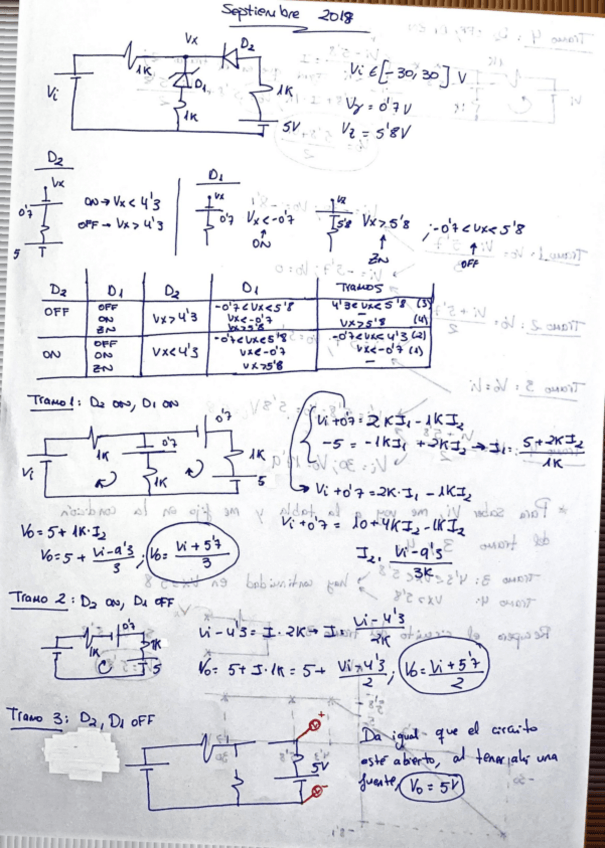 Septiembre 2018
Vx
D2
1K
D1
1K
Vi
1K
5V
Vi ∈ [-30, 30] V
Vγ = 0'7 V
Vz = 5'8V
D2
Vx
0'7
5
ON → Vx < 4'3
OFF → Vx > 4'3
D1
Vx
0'7
Vx < -0'7
↑
ON
Vx
5'8
Vx > 5'8
↑
ZN
; -0'7 < Vx < 5'8
↑
OFF
D2 D1 D2 D1 TRAMOS
OFF OFF Vx > 4'3 -0'7 < Vx < 5'8 4'3 < Vx < 5'8 (3)
ON Vx < -0'7 —
ZN Vx > 5'8 Vx > 5'8 (4)
ON OFF Vx < 4'3 -0'7 < Vx < 5'8 -0'7 < Vx < 4'3 (2)
ON Vx < -0'7 Vx < -0'7 (1)
ZN Vx > 5'8 —
Tramo 1: D2 ON, D1 ON
Vi
1K
0'7
1K
0'7
1K
5
Vi + 0'7 = 2K I1 - 1K I2
-5 = -1K I1 + 2K I2 → I1 = (5 + 2K I2) / 1K
→ Vi + 0'7 = 2K · I1 - 1K I2
Vi + 0'7 = 10 + 4K I2 - 1K I2
I2 = (Vi - 9'3) / 3K
Vo = 5 + 1K · I2
Vo = 5 + (Vi - 9'3) / 3 ; Vo = (Vi + 5'7) / 3
Tramo 2: D2 ON, D1 OFF
1K
0'7
1K
5
Vi - 4'3 = I · 2K → I = (Vi - 4'3) / 2K
Vo = 5 + I · 1K = 5 + (Vi - 4'3) / 2 ; Vo = (Vi + 5'7) / 2
Tramo 3: D2, D1 OFF
5V
+
-
Da igual que el circuito
esté abierto, al tener ahí una
fuente, Vo = 5V